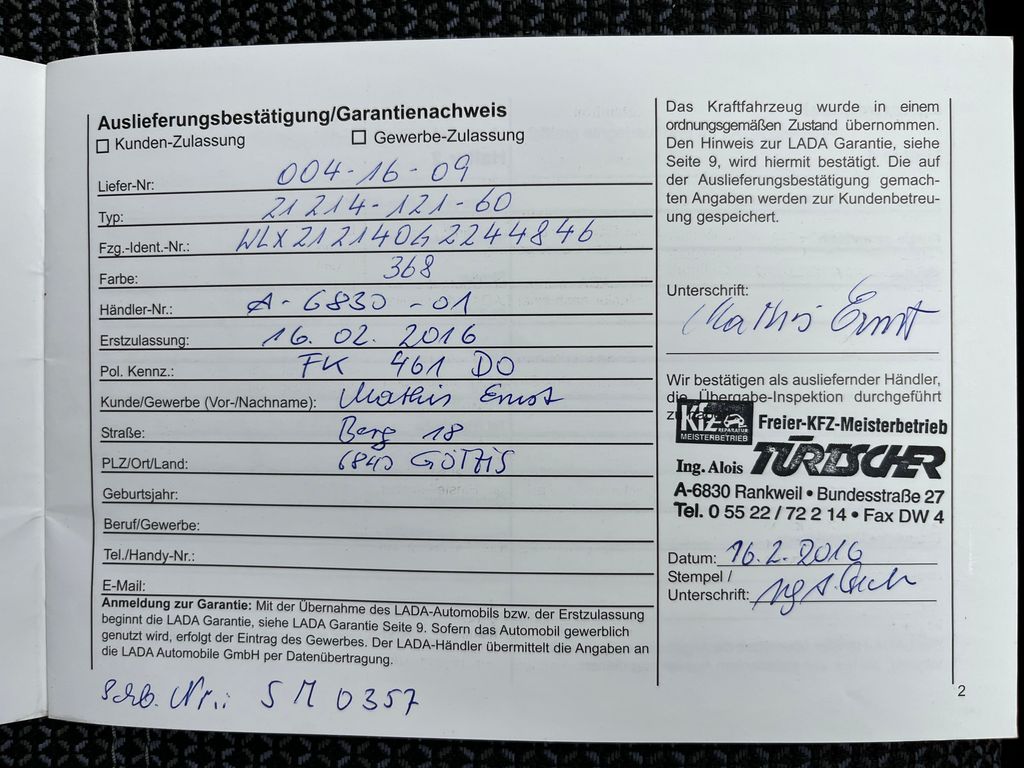 Auslieferungsbestätigung/Garantienachweis
☐ Kunden-Zulassung ☐ Gewerbe-Zulassung
Liefer-Nr: 004-16-09
Typ: 21214-121-60
Fzg.-Ident.-Nr.: WLX212140G2244846
Farbe: 368
Händler-Nr.: A-6830-01
Erstzulassung: 16. 02. 2016
Pol. Kennz.: FK 461 DO
Kunde/Gewerbe (Vor-/Nachname): Mathis Ernst
Straße: Berg 18
PLZ/Ort/Land: 6840 GÖTZIS
Geburtsjahr:
Beruf/Gewerbe:
Tel./Handy-Nr.:
E-Mail:
Anmeldung zur Garantie: Mit der Übernahme des LADA-Automobils bzw. der Erstzulassung
beginnt die LADA Garantie, siehe LADA Garantie Seite 9. Sofern das Automobil gewerblich
genutzt wird, erfolgt der Eintrag des Gewerbes. Der LADA-Händler übermittelt die Angaben an
die LADA Automobile GmbH per Datenübertragung.
Nr.: SM 0357
Das Kraftfahrzeug wurde in einem
ordnungsgemäßen Zustand übernommen.
Den Hinweis zur LADA Garantie, siehe
Seite 9, wird hiermit bestätigt. Die auf
der Auslieferungsbestätigung gemach-
ten Angaben werden zur Kundenbetreu-
ung gespeichert.
Unterschrift:
Mathis Ernst
Wir bestätigen als ausliefernder Händler,
die Übergabe-Inspektion durchgeführt
zu
Kfz REPARATUR
MEISTERBETRIEB
Freier-KFZ-Meisterbetrieb
Ing. Alois TÜRTSCHER
A-6830 Rankweil • Bundesstraße 27
Tel. 0 55 22 / 72 2 14 • Fax DW 4
Datum: 16.2.2016
Stempel /
Unterschrift:
2